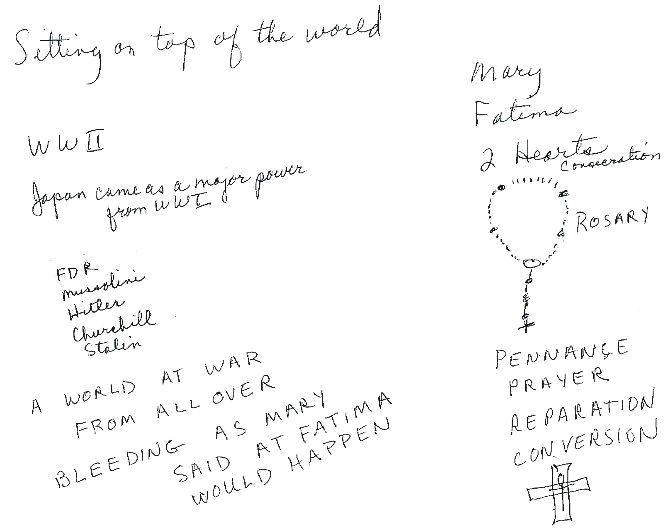 Sitting on top of the world
WW II
Japan came as a major power
from WWI
FDR
Mussolini
Hitler
Churchill
Stalin
A WORLD AT WAR
FROM ALL OVER
BLEEDING AS MARY
SAID AT FATIMA
WOULD HAPPEN
Mary
Fatima
2 Hearts
ROSARY
PENNANCE
PRAYER
REPARATION
CONVERSION